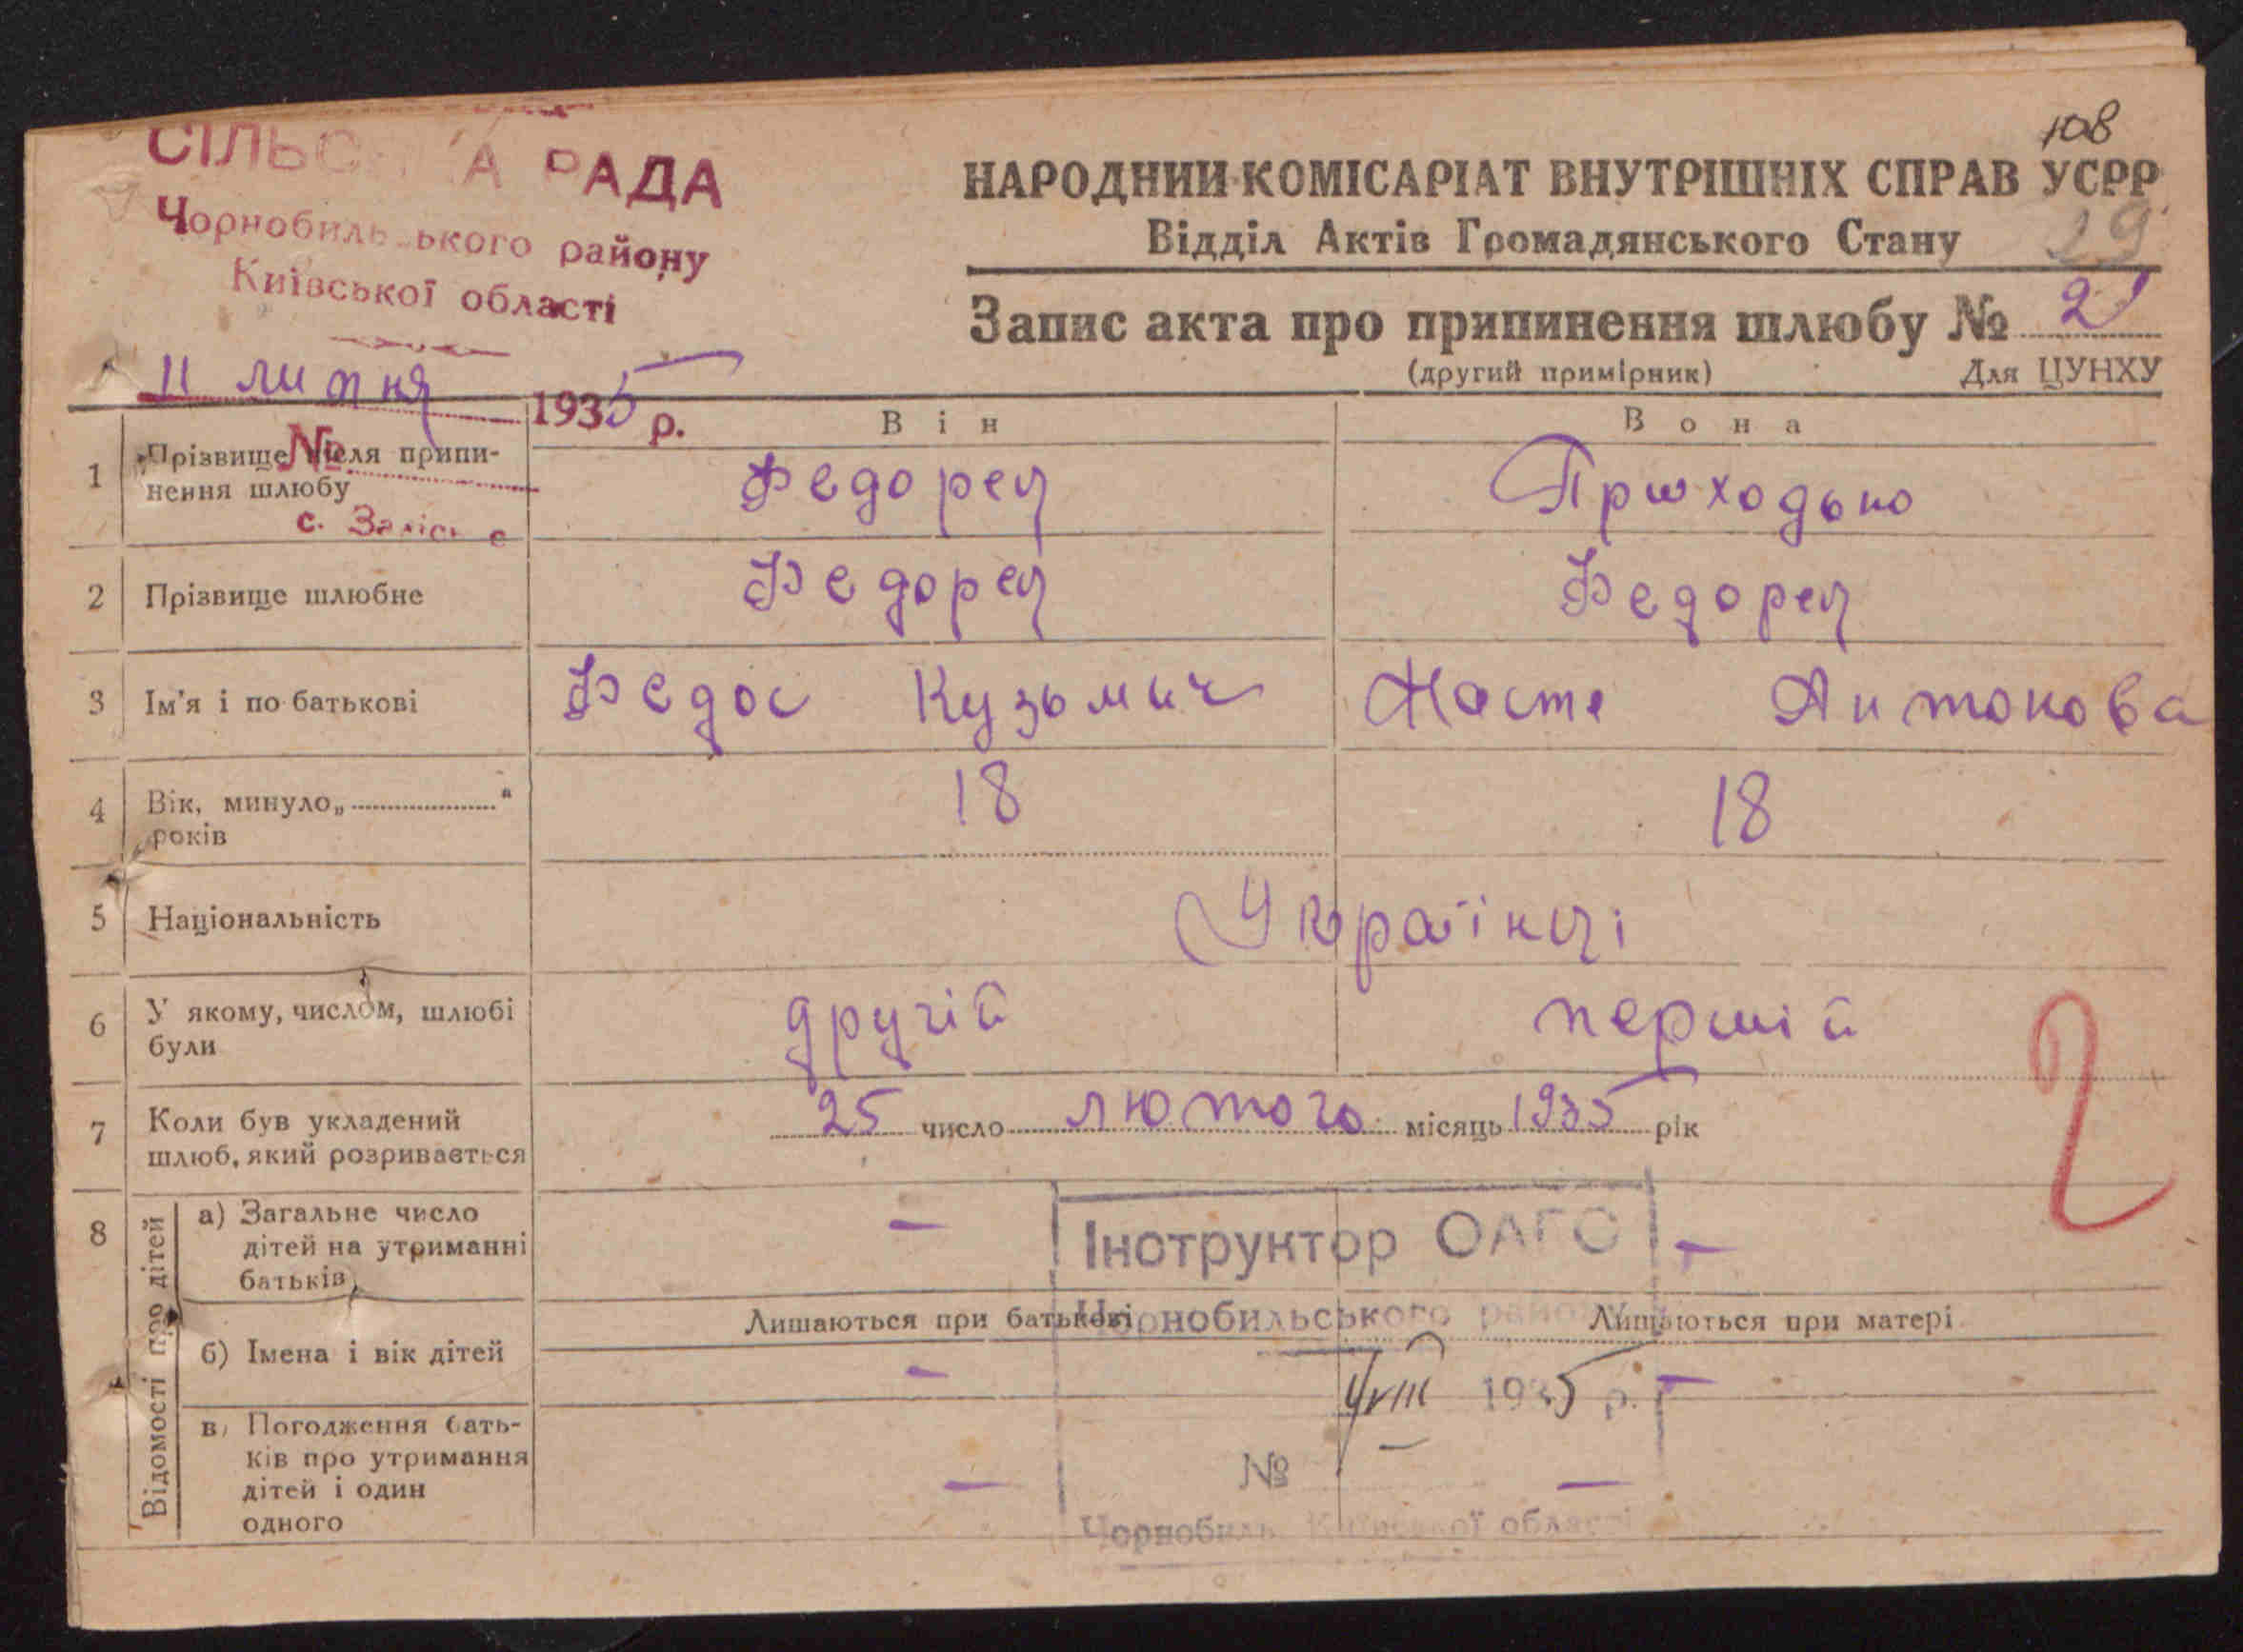 108
СІЛЬСЬКА РАДА
Чорнобильського району
Київської області
11 липня 1935 р.
№
с. Залісьє
НАРОДНИЙ КОМІСАРІАТ ВНУТРІШНІХ СПРАВ УСРР
Відділ Актів Громадянського Стану
29
Запис акта про припинення шлюбу № 21
(другий примірник) Для ЦУНХУ
Він Вона
1 Прізвище після припи-
нення шлюбу
Федорец Приходько
2 Прізвище шлюбне Федорец Федорец
3 Ім'я і по-батькові Федос Кузьмич Насте Антонова
4 Вік, минуло „ “
років
18 18
5 Національність Українці
6 У якому, числом, шлюбі
були
другій першій
2
7 Коли був укладений
шлюб, який розривається
25 число лютого місяць 1935 рік
8 Відомості про дітей
а) Загальне число
дітей на утриманні
батьків
— —
Інструктор ОАГС
Чорнобильського району
Лишаються при батькові Лишаються при матері
б) Імена і вік дітей — —
VIII 1935 р.
в) Погодження бать-
ків про утримання
дітей і один
одного
— —
№
Чорнобиль Київської області